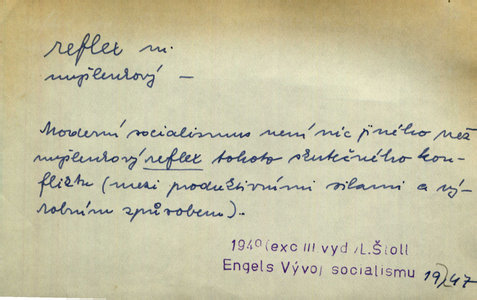 reflex m.
myšlenkový —
Moderní socialismus není nic jiného než
myšlenkový reflex tohoto skutečného kon-
fliktu (mezi produktivními silami a vý-
robním způsobem).
1940 (exc III vyd /L.Štoll
Engels Vývoj socialismu 19)47